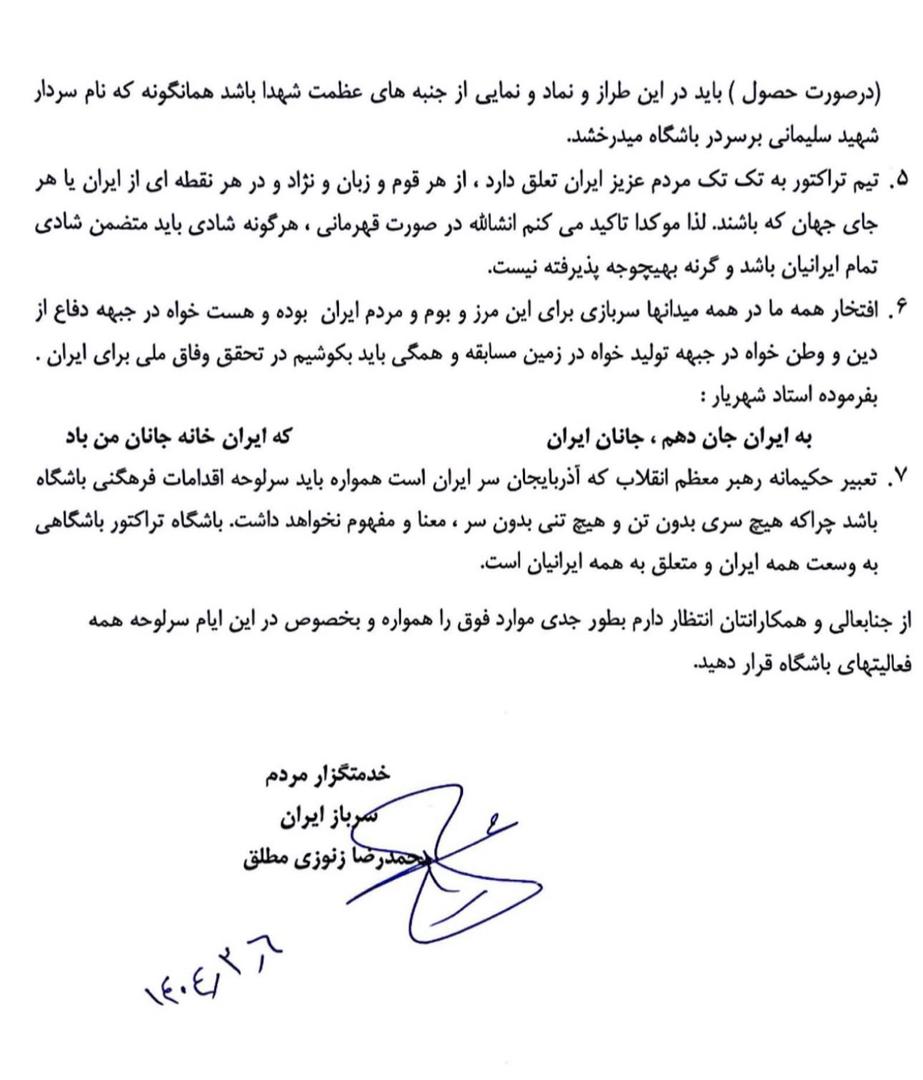 (درصورت حصول ) باید در این طراز و نماد و نمایی از جنبه های عظمت شهدا باشد همانگونه که نام سردار
شهید سلیمانی برسردر باشگاه میدرخشد.
۵. تیم تراکتور به تک تک مردم عزیز ایران تعلق دارد ، از هر قوم و زبان و نژاد و در هر نقطه ای از ایران یا هر
جای جهان که باشند. لذا موکدا تاکید می کنم انشالله در صورت قهرمانی ، هرگونه شادی باید متضمن شادی
تمام ایرانیان باشد و گرنه بهیچوجه پذیرفته نیست.
۶. افتخار همه ما در همه میدانها سربازی برای این مرز و بوم و مردم ایران بوده و هست خواه در جبهه دفاع از
دین و وطن خواه در جبهه تولید خواه در زمین مسابقه و همگی باید بکوشیم در تحقق وفاق ملی برای ایران .
بفرموده استاد شهریار :
به ایران جان دهم ، جانان ایران که ایران خانه جانان من باد
۷. تعبیر حکیمانه رهبر معظم انقلاب که آذربایجان سر ایران است همواره باید سرلوحه اقدامات فرهنگی باشگاه
باشد چراکه هیچ سری بدون تن و هیچ تنی بدون سر ، معنا و مفهوم نخواهد داشت. باشگاه تراکتور باشگاهی
به وسعت همه ایران و متعلق به همه ایرانیان است.
از جنابعالی و همکارانتان انتظار دارم بطور جدی موارد فوق را همواره و بخصوص در این ایام سرلوحه همه
فعالیتهای باشگاه قرار دهید.
خدمتگزار مردم
سرباز ایران
محمدرضا زنوزی مطلق
۱۴۰۴٫۲٫۶